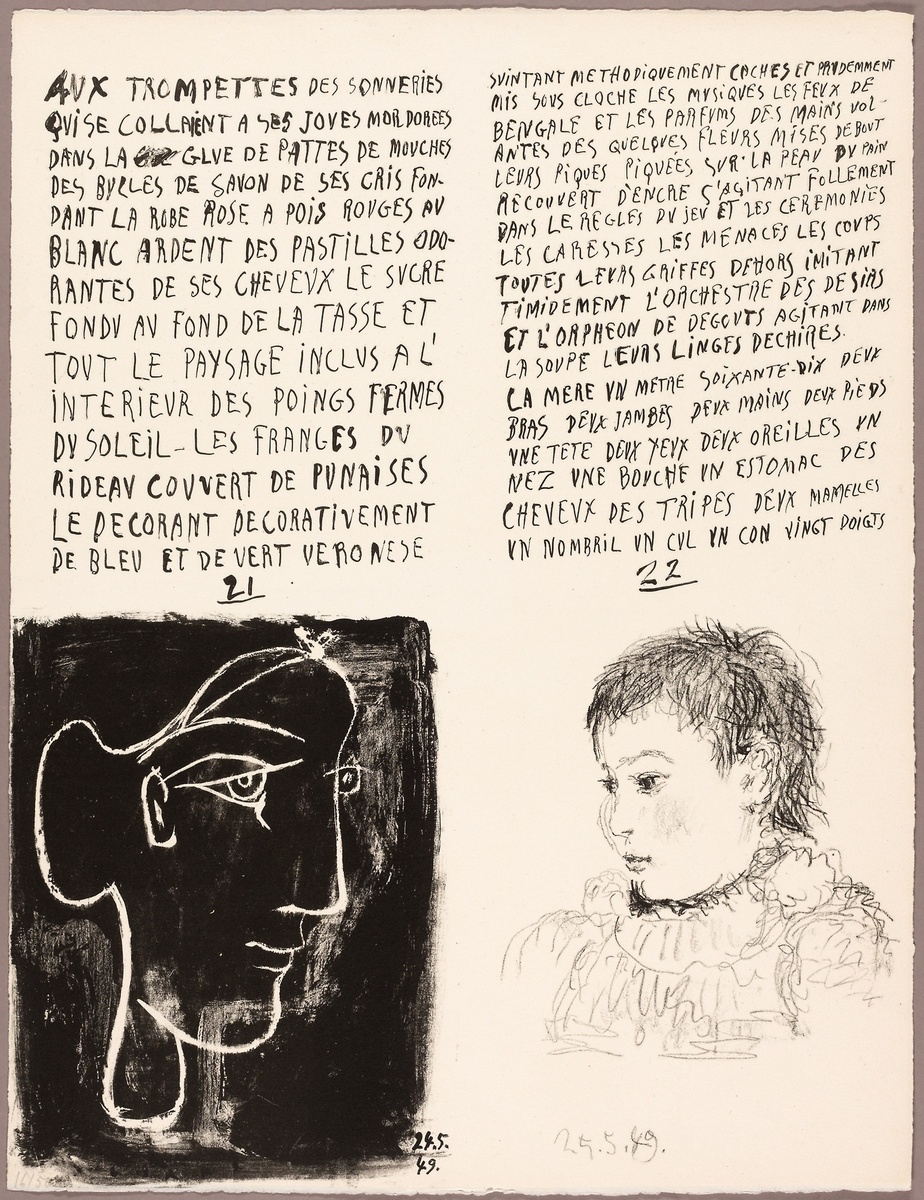 AUX TROMPETTES DES SONNERIES
QUI SE COLLAIENT A SES JOUES MORDOREES
DANS LA GLUE DE PATTES DE MOUCHES
DES BULLES DE SAVON DE SES CRIS FON-
DANT LA ROBE ROSE A POIS ROUGES AU
BLANC ARDENT DES PASTILLES ODO-
RANTES DE SES CHEVEUX LE SUCRE
FONDU AU FOND DE LA TASSE ET
TOUT LE PAYSAGE INCLUS A L'
INTERIEUR DES POINGS FERMES
DU SOLEIL - LES FRANGES DU
RIDEAU COUVERT DE PUNAISES
LE DECORANT DECORATIVEMENT
DE BLEU ET DE VERT VERONESE
21
SUINTANT METHODIQUEMENT CACHES ET PRUDEMMENT
MIS SOUS CLOCHE LES MUSIQUES LES FEUX DE
BENGALE ET LES PARFUMS DES MAINS VOL-
ANTES DES QUELQUES FLEURS MISES DEBOUT
LEURS PIQUES PIQUÉES SUR LA PEAU DU PAIN
RECOUVERT D'ENCRE S'AGITANT FOLLEMENT
DANS LE REGLES DU JEU ET LES CEREMONIES
LES CARESSES LES MENACES LES COUPS
TOUTES LEURS GRIFFES DEHORS IMITANT
TIMIDEMENT L'ORCHESTRE DES DESIRS
ET L'ORPHEON DE DEGOUTS AGITANT DANS
LA SOUPE LEURS LINGES DECHIRES.
LA MERE UN METRE SOIXANTE-DIX DEUX
BRAS DEUX JAMBES DEUX MAINS DEUX PIEDS
UNE TETE DEUX YEUX DEUX OREILLES UN
NEZ UNE BOUCHE UN ESTOMAC DES
CHEVEUX DES TRIPES DEUX MAMELLES
UN NOMBRIL UN CUL UN CON VINGT DOIGTS
22
24.5.
49.
24.5.49.